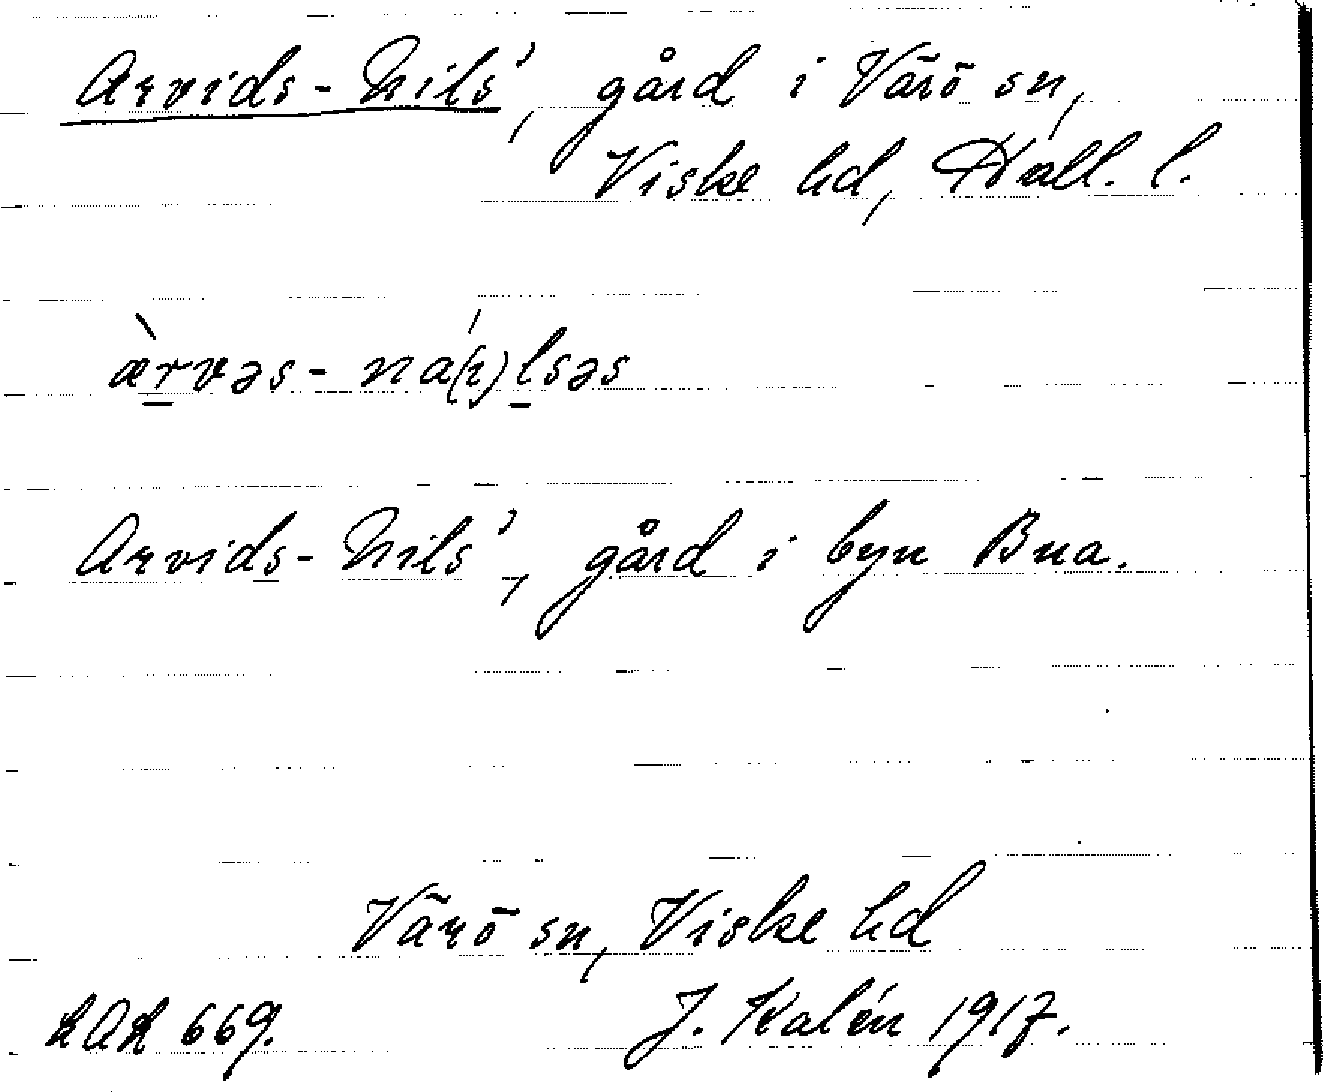 Arvids-Nils', gård i Värö sn,
Viske hd, Hall. l.
ærvəs- na(r)lsəs
Arvids-Nils', gård i byn Bua.
Värö sn, Viske hd
LAL 669. J. Kalén 1917.